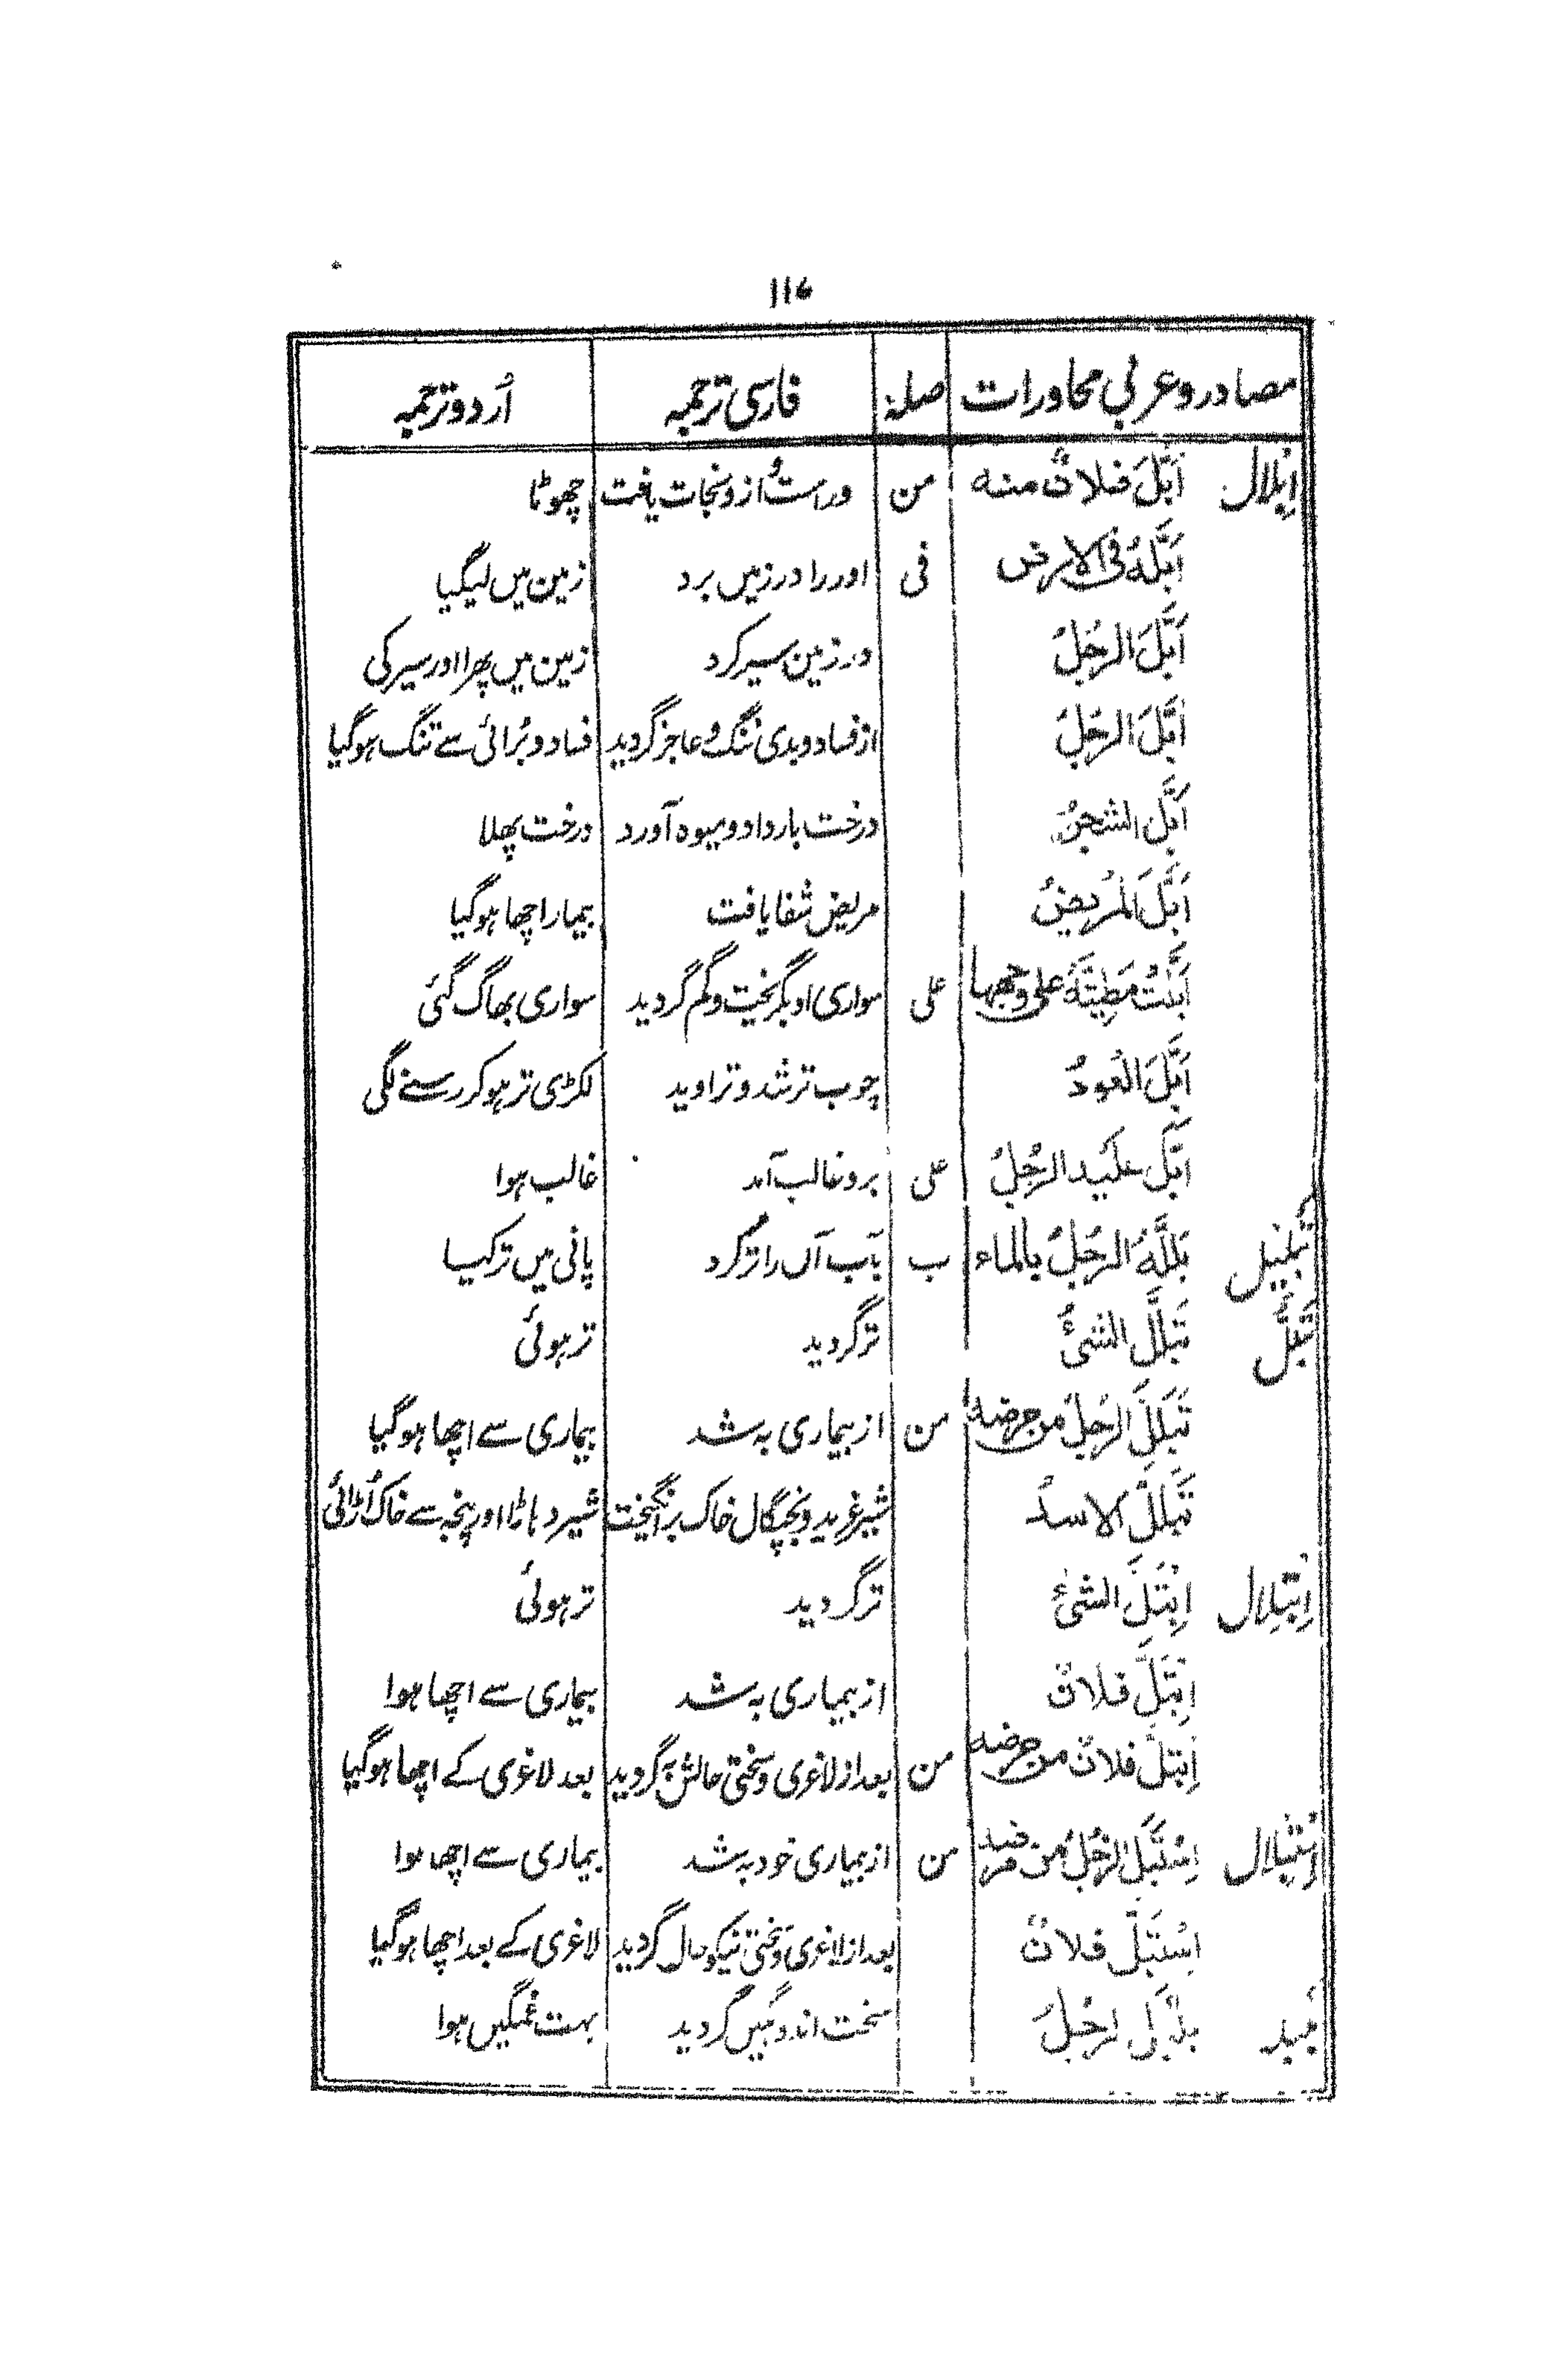 ۱۱۷
مصادر و عربی محاورات صلہ فارسی ترجمہ اُردو ترجمہ
اِبْلال اَبَلَّ فلانٌ منہ من ورست و از و نجات یافت چھوٹا
اَبَلَّہٗ فی الارض فی اورا در زمیں برد زمین میں لیگیا
اَبَلَّ الرَّجُلُ در زمین سیر کرد زمین میں پھرا اور سیر کی
اَبَلَّ الرَّجُلُ از فساد و بدی تنگ و عاجز گردید فساد و بُرائی سے تنگ ہوگیا
اَبَلَّ الشجرُ درخت بار داد و میوہ آورد درخت پھلا
اَبَلَّ المَرِیضُ مریض شفا یافت بیمار اچھا ہوگیا
اَبَلَّتْ مَطِیَّتُہٗ علی وجھہا علی سواری او بگریخت و گم گردید سواری بھاگ گئی
اَبَلَّ العُودُ چوب تر شد و تراوید لکڑی تر ہو کر رسنے لگی
اَبَلَّ عَلَیہ الرَّجُلُ علی برو غالب آمد غالب ہوا
تَبْلِیل بَلَّلَہُ الرَّجُلُ بالماء ب بآب آں را تر کرد پانی میں تر کیا
تَبَلُّل تَبَلَّلَ الشیءُ تر گردید تر ہوئی
تَبَلَّلَ الرَّجُلُ من مرضہ من از بیماری بہ شد بیماری سے اچھا ہوگیا
تَبَلَّلَ الاسدُ شیر غرید و بچنگال خاک برانگیخت شیر دہاڑا اور پنجہ سے خاک اُڑائی
اِبْتِلال اِبْتَلَّ الشیءُ تر گردید تر ہوئی
اِبْتَلَّ فلانٌ از بیماری بہ شد بیماری سے اچھا ہوا
اِبْتَلَّ فلانٌ من مرضہ من بعد از لاغری و سختی حالش بہ گردید بعد لاغری کے اچھا ہوگیا
اِسْتِبْلال اِسْتَبَلَّ الرَّجُلُ من مرضہ من از بیماری خود بہ شد بیماری سے اچھا ہوا
اِسْتَبَلَّ فلانٌ بعد از لاغری و سختی نیکو حال گردید لاغری کے بعد اچھا ہوگیا
الرَّجُلُ سخت اندوہگیں گردید بہت غمگیں ہوا